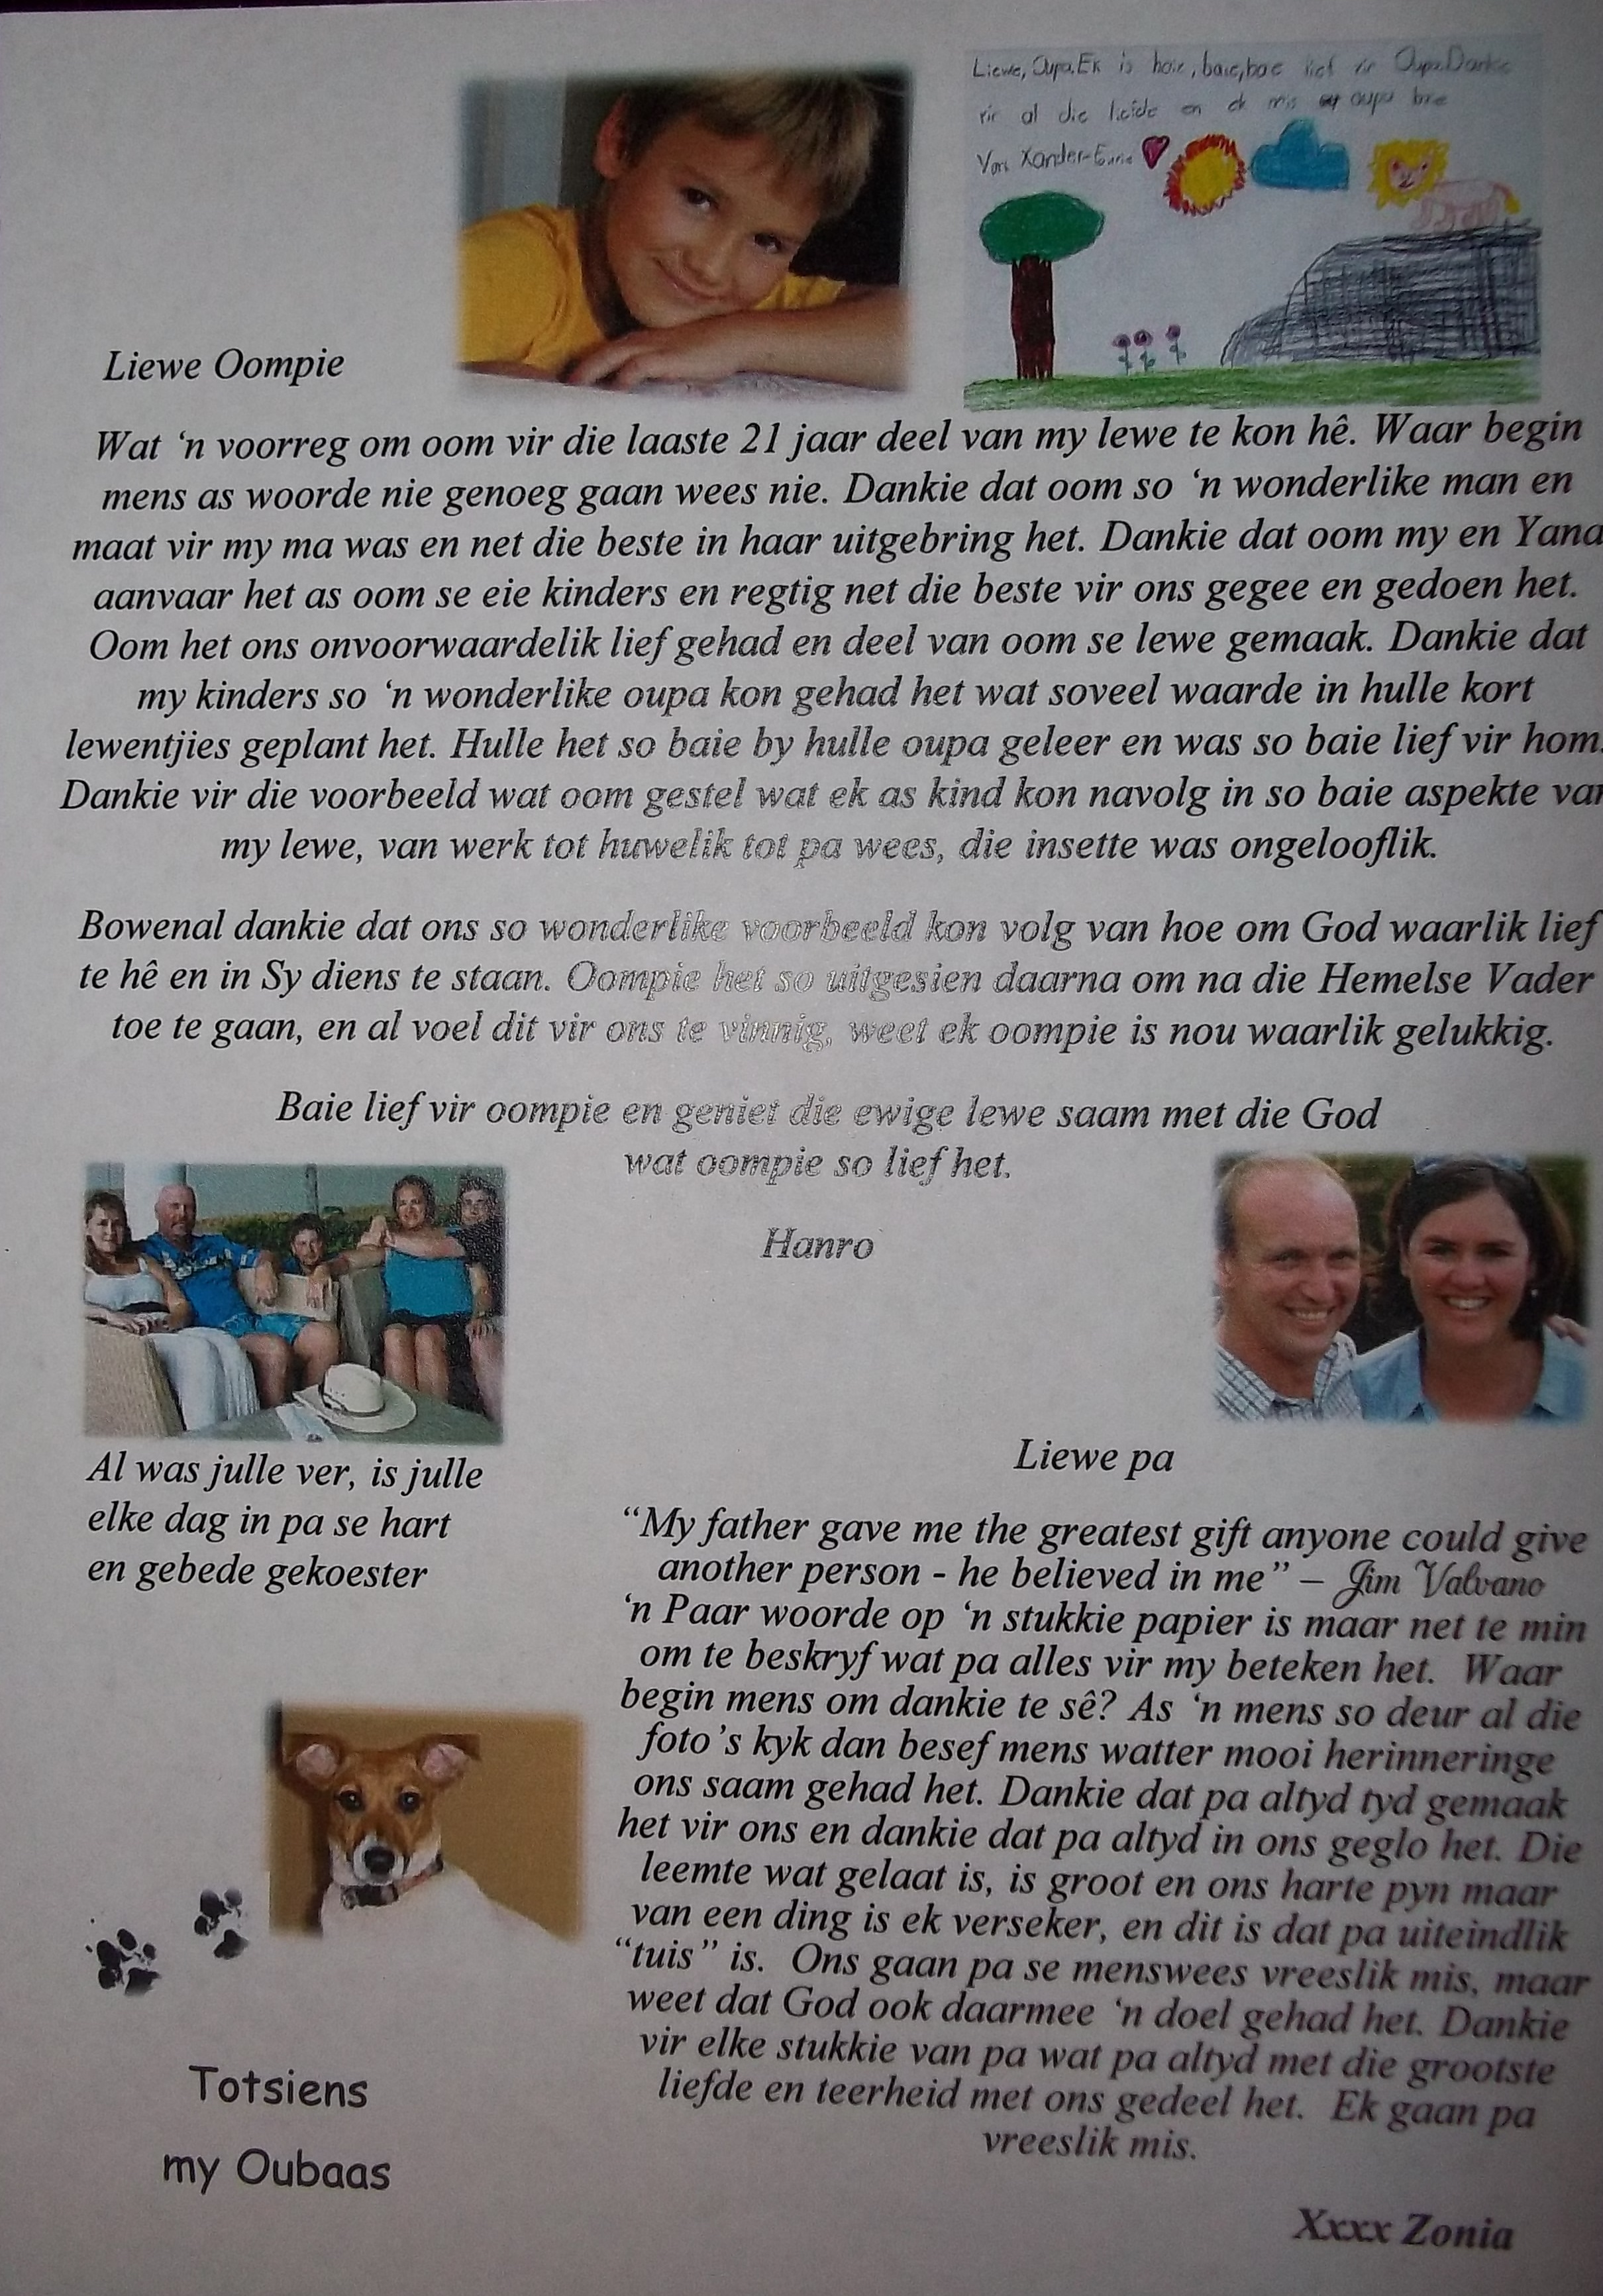 Liewe, Oupa. Ek is baie, baie, bae lief vir Oupa. Dankie
vir al die liefde en ek mis oupa bae
Van Xander-
Liewe Oompie
Wat ‘n voorreg om oom vir die laaste 21 jaar deel van my lewe te kon hê. Waar begin
mens as woorde nie genoeg gaan wees nie. Dankie dat oom so ‘n wonderlike man en
maat vir my ma was en net die beste in haar uitgebring het. Dankie dat oom my en Yana
aanvaar het as oom se eie kinders en regtig net die beste vir ons gegee en gedoen het.
Oom het ons onvoorwaardelik lief gehad en deel van oom se lewe gemaak. Dankie dat
my kinders so ‘n wonderlike oupa kon gehad het wat soveel waarde in hulle kort
lewentjies geplant het. Hulle het so baie by hulle oupa geleer en was so baie lief vir hom.
Dankie vir die voorbeeld wat oom gestel wat ek as kind kon navolg in so baie aspekte van
my lewe, van werk tot huwelik tot pa wees, die insette was ongelooflik.
Bowenal dankie dat ons so wonderlike voorbeeld kon volg van hoe om God waarlik lief
te hê en in Sy diens te staan. Oompie het so uitgesien daarna om na die Hemelse Vader
toe te gaan, en al voel dit vir ons te vinnig, weet ek oompie is nou waarlik gelukkig.
Baie lief vir oompie en geniet die ewige lewe saam met die God
wat oompie so lief het.
Hanro
Al was julle ver, is julle
elke dag in pa se hart
en gebede gekoester
Liewe pa
“My father gave me the greatest gift anyone could give
another person - he believed in me” – Jim Valvano
‘n Paar woorde op ‘n stukkie papier is maar net te min
om te beskryf wat pa alles vir my beteken het. Waar
begin mens om dankie te sê? As ‘n mens so deur al die
foto’s kyk dan besef mens watter mooi herinneringe
ons saam gehad het. Dankie dat pa altyd tyd gemaak
het vir ons en dankie dat pa altyd in ons geglo het. Die
leemte wat gelaat is, is groot en ons harte pyn maar
van een ding is ek verseker, en dit is dat pa uiteindlik
“tuis” is. Ons gaan pa se menswees vreeslik mis, maar
weet dat God ook daarmee ‘n doel gehad het. Dankie
vir elke stukkie van pa wat pa altyd met die grootste
liefde en teerheid met ons gedeel het. Ek gaan pa
vreeslik mis.
Xxxx Zonia
Totsiens
my Oubaas